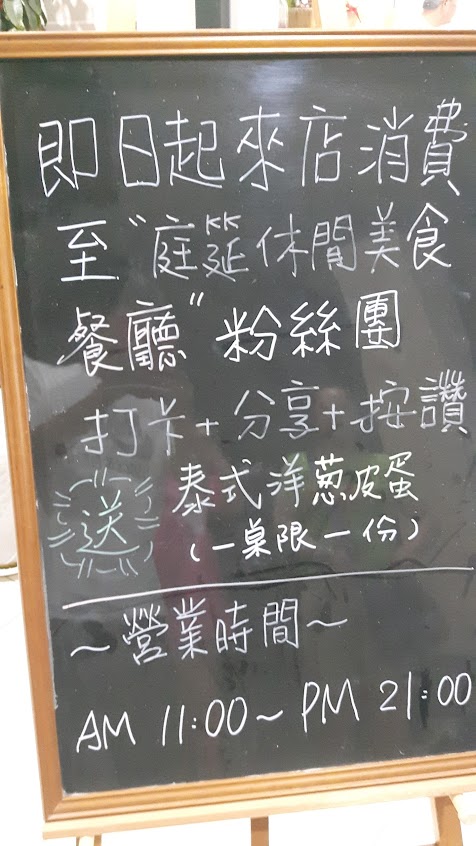 即日起來店消費
至"庭筵休閒美食
餐廳"粉絲團
打卡+分享+按讚
送
泰式洋葱皮蛋
(一桌限一份)
~營業時間~
AM 11:00~PM 21:00